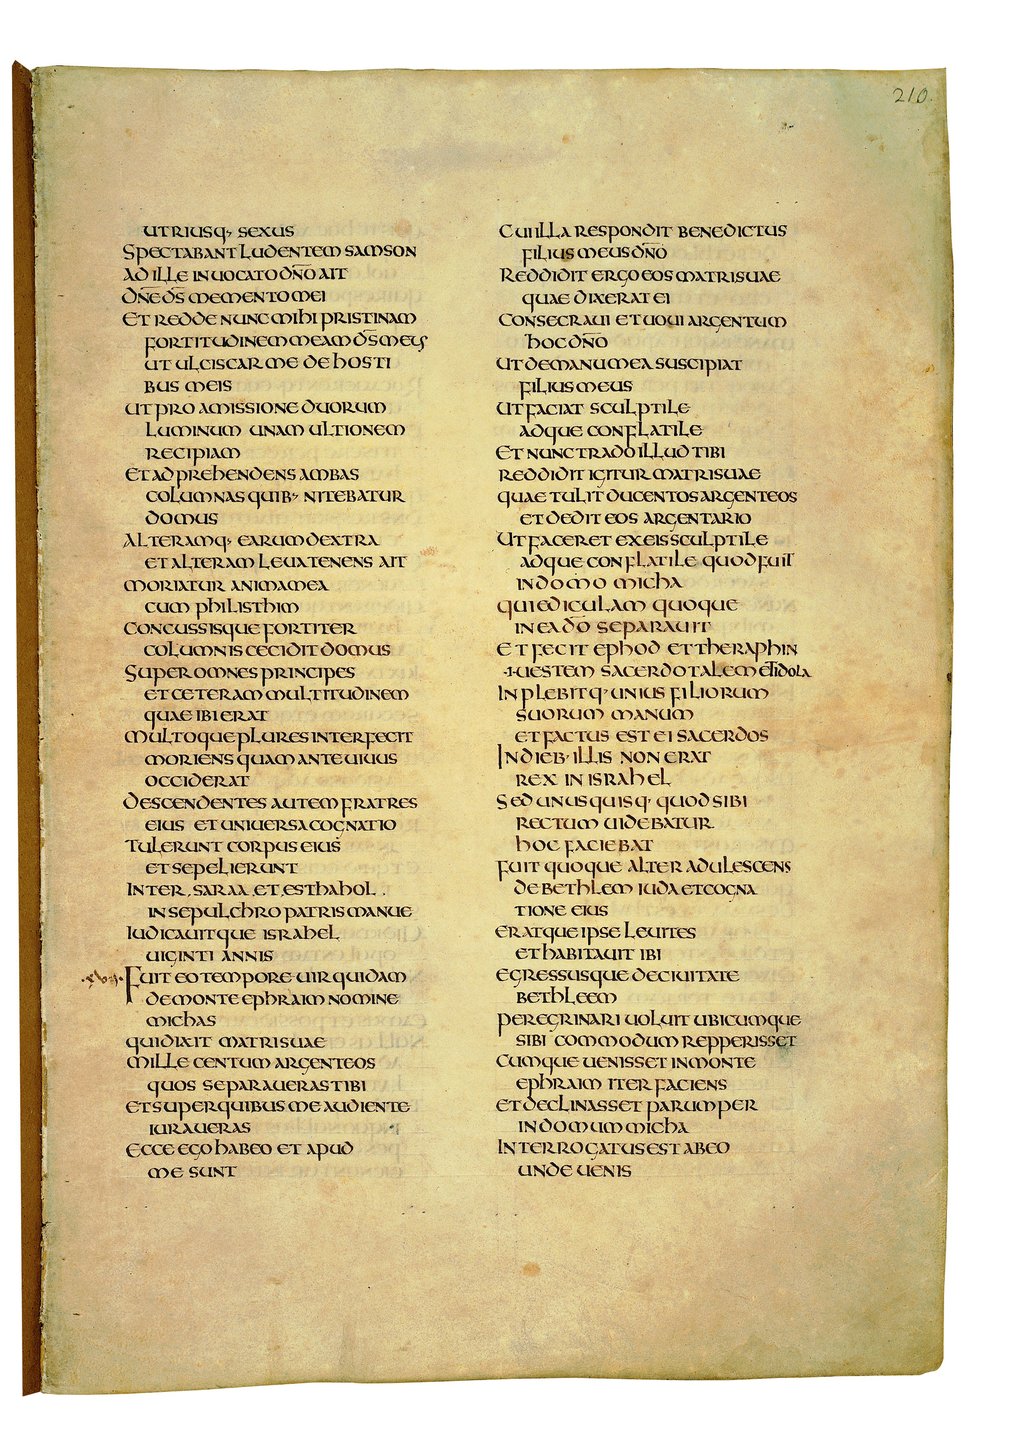 210.
UTRIUSQ· SEXUS
SPECTABANT LUDENTEM SAMSON
AD ILLE INUOCATO DÑO AIT
DÑE DS̄ MEMENTO MEI
ET REDDE NUNC MIHI PRISTINAM
FORTITUDINEM MEAM DS̄ MEUS
UT ULCISCAR ME DE HOSTI
BUS MEIS
UT PRO AMISSIONE DUORUM
LUMINUM UNAM ULTIONEM
RECIPIAM
ET ADPREHENDENS AMBAS
COLUMNAS QUIB· NITEBATUR
DOMUS
ALTERAMQ· EARUM DEXTRA
ET ALTERAM LEUA TENENS AIT
MORIATUR ANIMA MEA
CUM PHILISTHIM
CONCUSSISQUE FORTITER
COLUMNIS CECIDIT DOMUS
SUPER OMNES PRINCIPES
ET CETERAM MULTITUDINEM
QUAE IBI ERAT
MULTOQUE PLURES INTERFECIT
MORIENS QUAM ANTE UIUUS
OCCIDERAT
DESCENDENTES AUTEM FRATRES
EIUS ET UNIUERSA COGNATIO
TULERUNT CORPUS EIUS
ET SEPELIERUNT
INTER . SARAA . ET . ESTHAHOL .
IN SEPULCHRO PATRIS MANUE
IUDICAUITQUE ISRAHEL
UIGINTI ANNIS
FUIT EO TEMPORE UIR QUIDAM
DE MONTE EPHRAIM NOMINE
MICHAS
QUI DIXIT MATRI SUAE
MILLE CENTUM ARGENTEOS
QUOS SEPARAUERAS TIBI
ET SUPER QUIBUS ME AUDIENTE
IURAUERAS
ECCE EGO HABEO ET APUD
ME SUNT
CUI ILLA RESPONDIT BENEDICTUS
FILIUS MEUS DÑO
REDDIDIT ERGO EOS MATRI SUAE
QUAE DIXERAT EI
CONSECRAUI ET UOUI ARGENTUM
HOC DÑO
UT DE MANU MEA SUSCIPIAT
FILIUS MEUS
UT FACIAT SCULPTILE
ADQUE CONFLATILE
ET NUNC TRADO ILLUD TIBI
REDDIDIT IGITUR MATRI SUAE
QUAE TULIT DUCENTOS ARGENTEOS
ET DEDIT EOS ARGENTARIO
UT FACERET EX EIS SCULPTILE
ADQUE CONFLATILE QUOD FUIT
IN DOMO MICHA
QUI EDICULAM QUOQUE
IN EA DŌ SEPARAUIT
ET FECIT EPHOD ET THERAPHIN
·I· UESTEM SACERDOTALEM ET IDOLA
INPLEBITQ· UNIUS FILIORUM
SUORUM MANUM
ET FACTUS EST EI SACERDOS
IN DIEB· ILLIS NON ERAT
REX IN ISRAHEL
SED UNUSQUISQ· QUOD SIBI
RECTUM UIDEBATUR
HOC FACIEBAT
FUIT QUOQUE ALTER ADULESCENS
DE BETHLEM IUDA ET COGNA
TIONE EIUS
ERATQUE IPSE LEUITES
ET HABITAUIT IBI
EGRESSUSQUE DE CIUITATE
BETHLEEM
PEREGRINARI UOLUIT UBICUMQUE
SIBI COMMODUM REPPERISSET
CUMQUE UENISSET IN MONTE
EPHRAIM ITER FACIENS
ET DECLINASSET PARUMPER
IN DOMUM MICHA
INTERROGATUS EST AB EO
UNDE UENIS